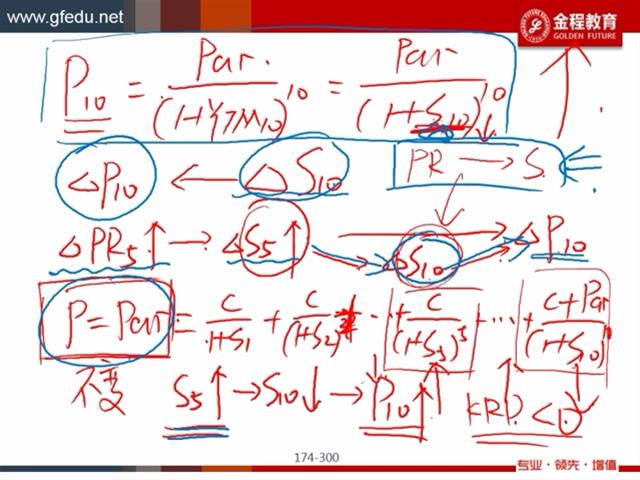 www.gfedu.net
金程教育
GOLDEN FUTURE
P₁₀ = Par. / (1+YTM₁₀)¹⁰ = Par / (1+S₁₀)¹⁰ ↓ ↑
△P₁₀ ← △S₁₀ PR → S.
△PR₅↑ → △S₅↑ → △S₁₀ → △P₁₀
P=Par = C/1+S₁ + C/(1+S₂)² + ... + C/(1+S₅)⁵ + ... + C+Par/(1+S₁₀)¹⁰
不变 S₅↑ → S₁₀↓ → P₁₀↑ KRD₅ < 0
174-300
专业·领先·增值